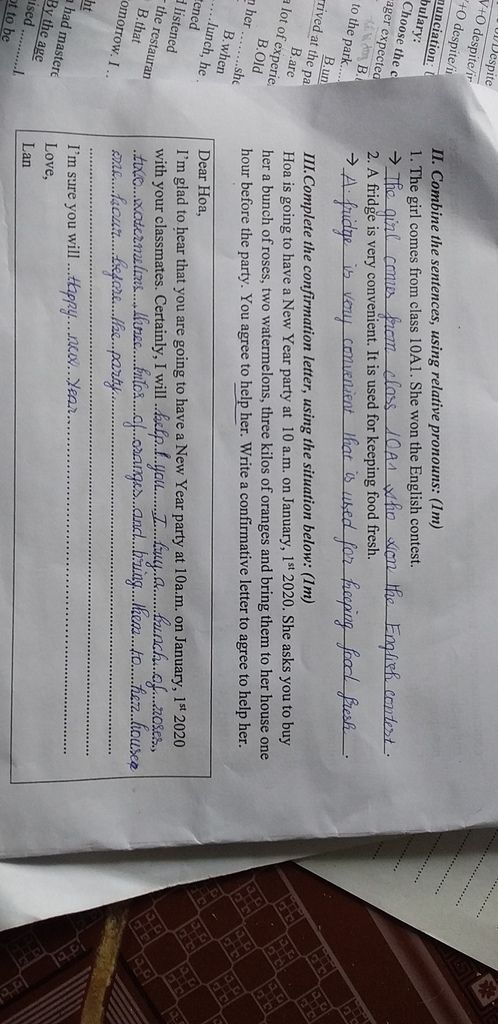 II. Combine the sentences, using relative pronouns: (1m)
1. The girl comes from class 10A1. She won the English contest.
→ The girl comes from class 10A1 who won the English contest.
2. A fridge is very convenient. It is used for keeping food fresh.
→ A fridge is very convenient that is used for keeping food fresh.
III.Complete the confirmation letter, using the situation below: (1m)
Hoa is going to have a New Year party at 10 a.m. on January, 1st 2020. She asks you to buy
her a bunch of roses, two watermelons, three kilos of oranges and bring them to her house one
hour before the party. You agree to help her. Write a confirmative letter to agree to help her.
Dear Hoa,
I'm glad to hear that you are going to have a New Year party at 10a.m. on January, 1st 2020
with your classmates. Certainly, I will help you I buy a bunch of roses,
two watermelons, three kilos of oranges and bring them to her house
one hour before the party
I'm sure you will Happy new Year
Love,
Lan
V+O despite
+O despite/in
nunciation:
bulary:
Choose the c
ager expected
to the park
B.
rived at the pa
B.are
a lot of experie
B.Old
her she
B.when
lunch, he
ened
listened
the restauran
B.that
omorrow. I
had master
B. the age
ised
t to be